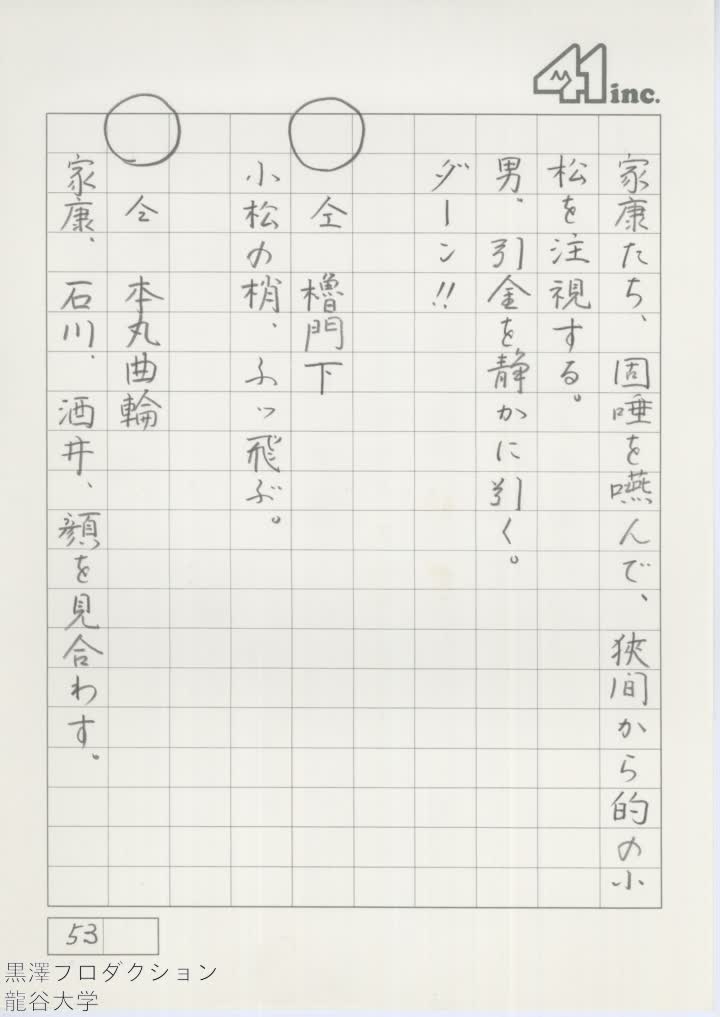 41 inc.
家康たち、固唾を嚥んで、狭間から的の小
松を注視する。
男。引金を静かに引く。
ダーン!!
◯ 仝 櫓門下
小松の梢、ふッ飛ぶ。
◯ 仝 本丸曲輪
家康、石川、酒井、顔を見合わす。
53
黒澤プロダクション
龍谷大学